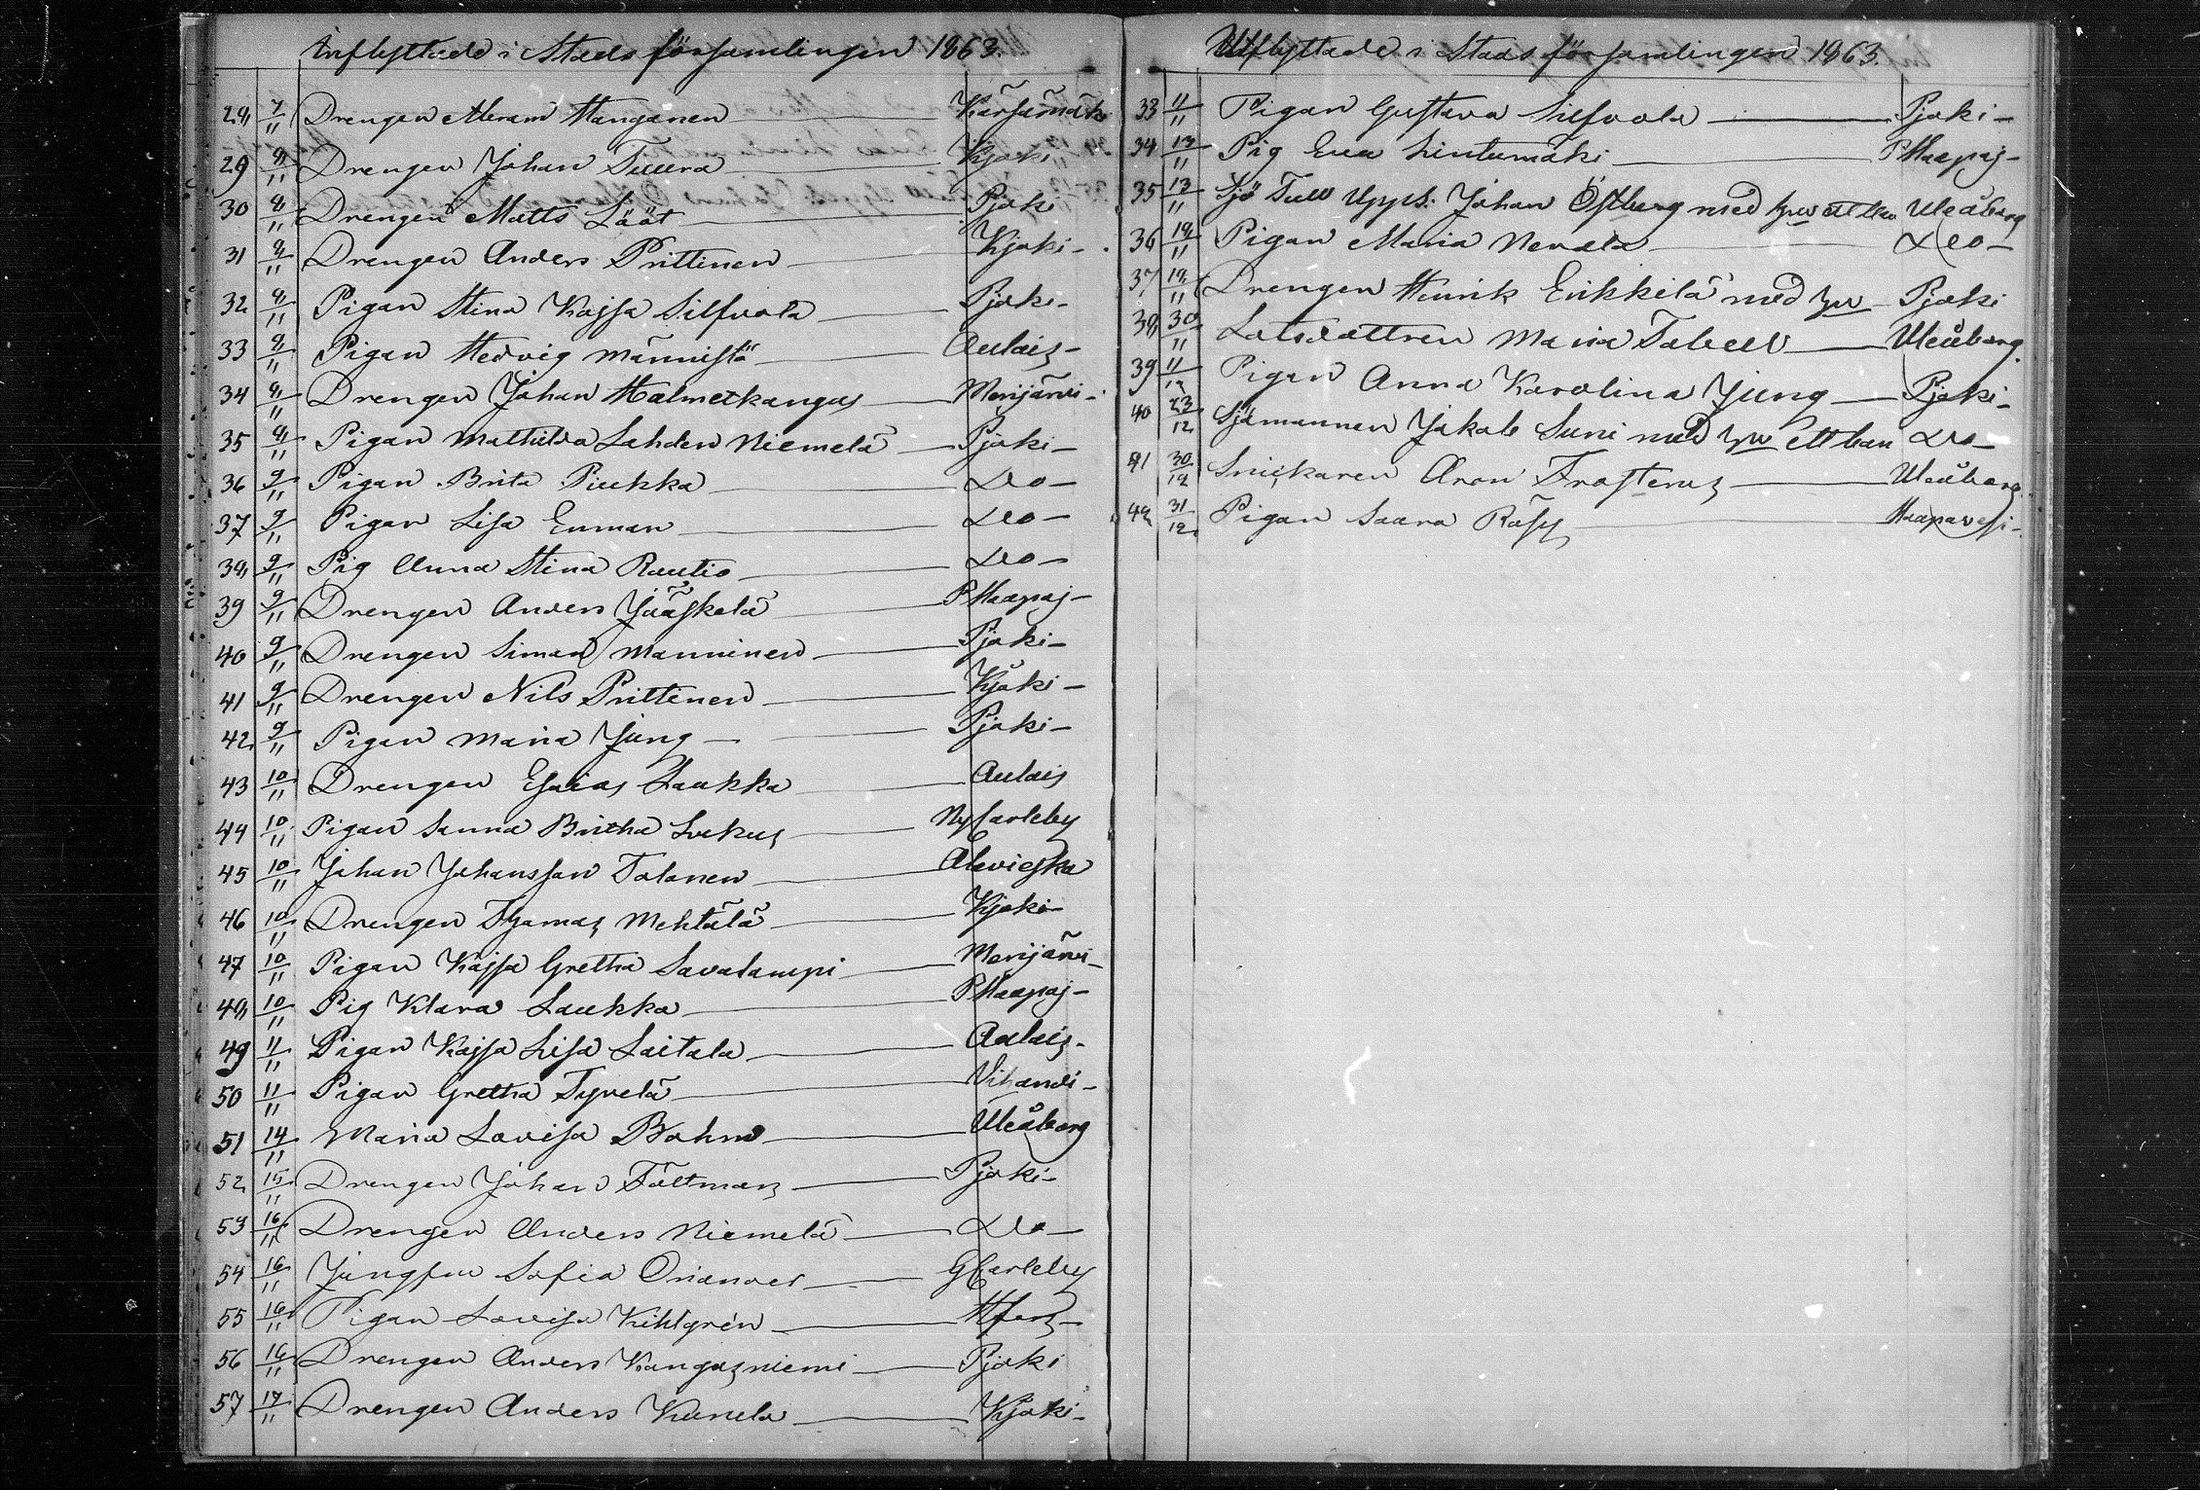 Inflyttade i Stads församlingen 1863.
28 7/11 Drengen Abram Hanganen Kärsämäki
29 8/11 Drengen Johan Tuura Kjoki
30 8/11 Drengen Matts Lööt Pjoki
31 8/11 Drengen Anders Prittinen Kjoki-
32 8/11 Pigan Stina Kajsa Silfvola Pjoki-
33 8/11 Pigan Hedvig Männistö Aulais-
34 8/11 Drengen Johan Halmetkangas Merijärvi-
35 8/11 Pigan Mathilda Lahden Niemelä Pjoki-
36 9/11 Pigan Brita Piukka Do-
37 9/11 Pigan Lisa Enman Do-
38 9/11 Pig Anna Stina Rautio Do-
39 9/11 Drengen Anders Jääskelä PHaapaj-
40 9/11 Drengen Simon Manninen Pjoki-
41 9/11 Drengen Nils Prittinen Kjoki-
42 9/11 Pigan Maria Jung Pjoki-
43 10/11 Drengen Esaias Laukka Aulais
44 10/11 Pigan Sanna Britha NyCarleby
45 10/11 Johan Johansson Tolonen Alavieska
46 10/11 Drengen Thomas Mehtälä Kjoki
47 10/11 Pigan Kajsa Gretha Savalampi Merijärvi-
48 10/11 Pig Klara Laukka PHaapaj-
49 11/11 Pigan Kajsa Lisa Laitala Aulais-
50 11/11 Pigan Gretha Tyrelä Vihandi-
51 14/11 Maria Lovisa Bohm Uleåborg
52 15/11 Drengen Johan Fältmars Pjoki-
53 16/11 Drengen Anders Niemelä Do-
54 16/11 Jungfru Sofia GCarleby
55 16/11 Pigan Lovisa Kihlgrén Hfors-
56 16/11 Drengen Anders Kangasniemi Pjoki
57 17/11 Drengen Anders Kunela Kjoki-
Utflyttade i Stads församlingen 1863.
33 11/11 Pigan Gustava Silfvola Pjoki-
34 13/11 Pig Eva Lintumäki PHaapaj-
35 13/11 Sjö Tull Upps. Johan Östberg med hru Uleåborg
36 18/11 Pigan Maria Nevala Do-
37 18/11 Drengen Henrik Erikkilä med hru Pjoki
38 30/11 Lotsdottren Maria Tabell Uleåborg.
39 11/12 Pigan Anna Karolina Jung Pjoki-
40 23/12 Sjömannen Jakob Suni med hru ett barn Do-
41 30/12 Snickaren Aron Frosterus Uleåborg
42 31/12 Pigan Saara Räsy Haapavesi-